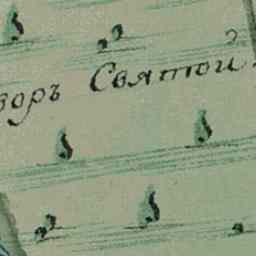 воръ Святой